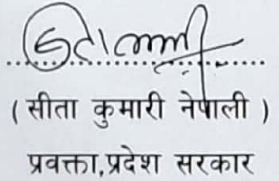 ( सीता कुमारी नेपाली )
प्रवक्ता,प्रदेश सरकार